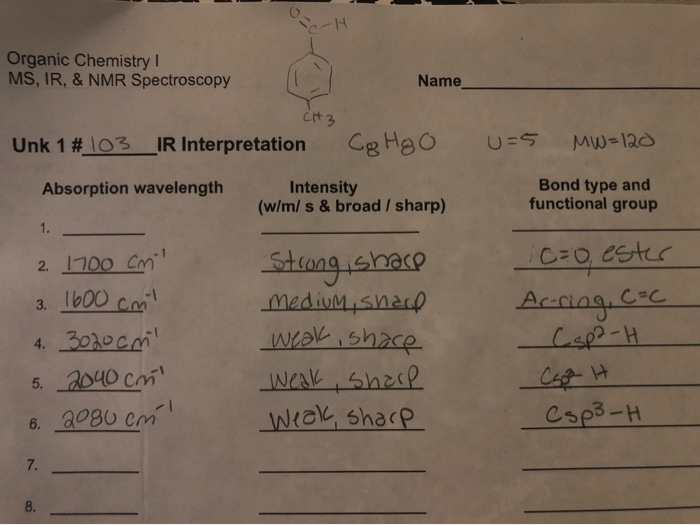 O
C-H
Organic Chemistry I
MS, IR, & NMR Spectroscopy
Name
CH3
Unk 1 # 103 IR Interpretation C8H8O U=5 MW=120
Absorption wavelength Intensity (w/m/ s & broad / sharp) Bond type and functional group
1.
2. 1700 cm-1 Strong, sharp C=O, ester
3. 1600 cm-1 medium, sharp Ar-ring, C=C
4. 3020 cm-1 Weak, sharp Csp2-H
5. 2040 cm-1 Weak, sharp H
6. 2080 cm-1 Weak, sharp Csp3-H
7.
8.